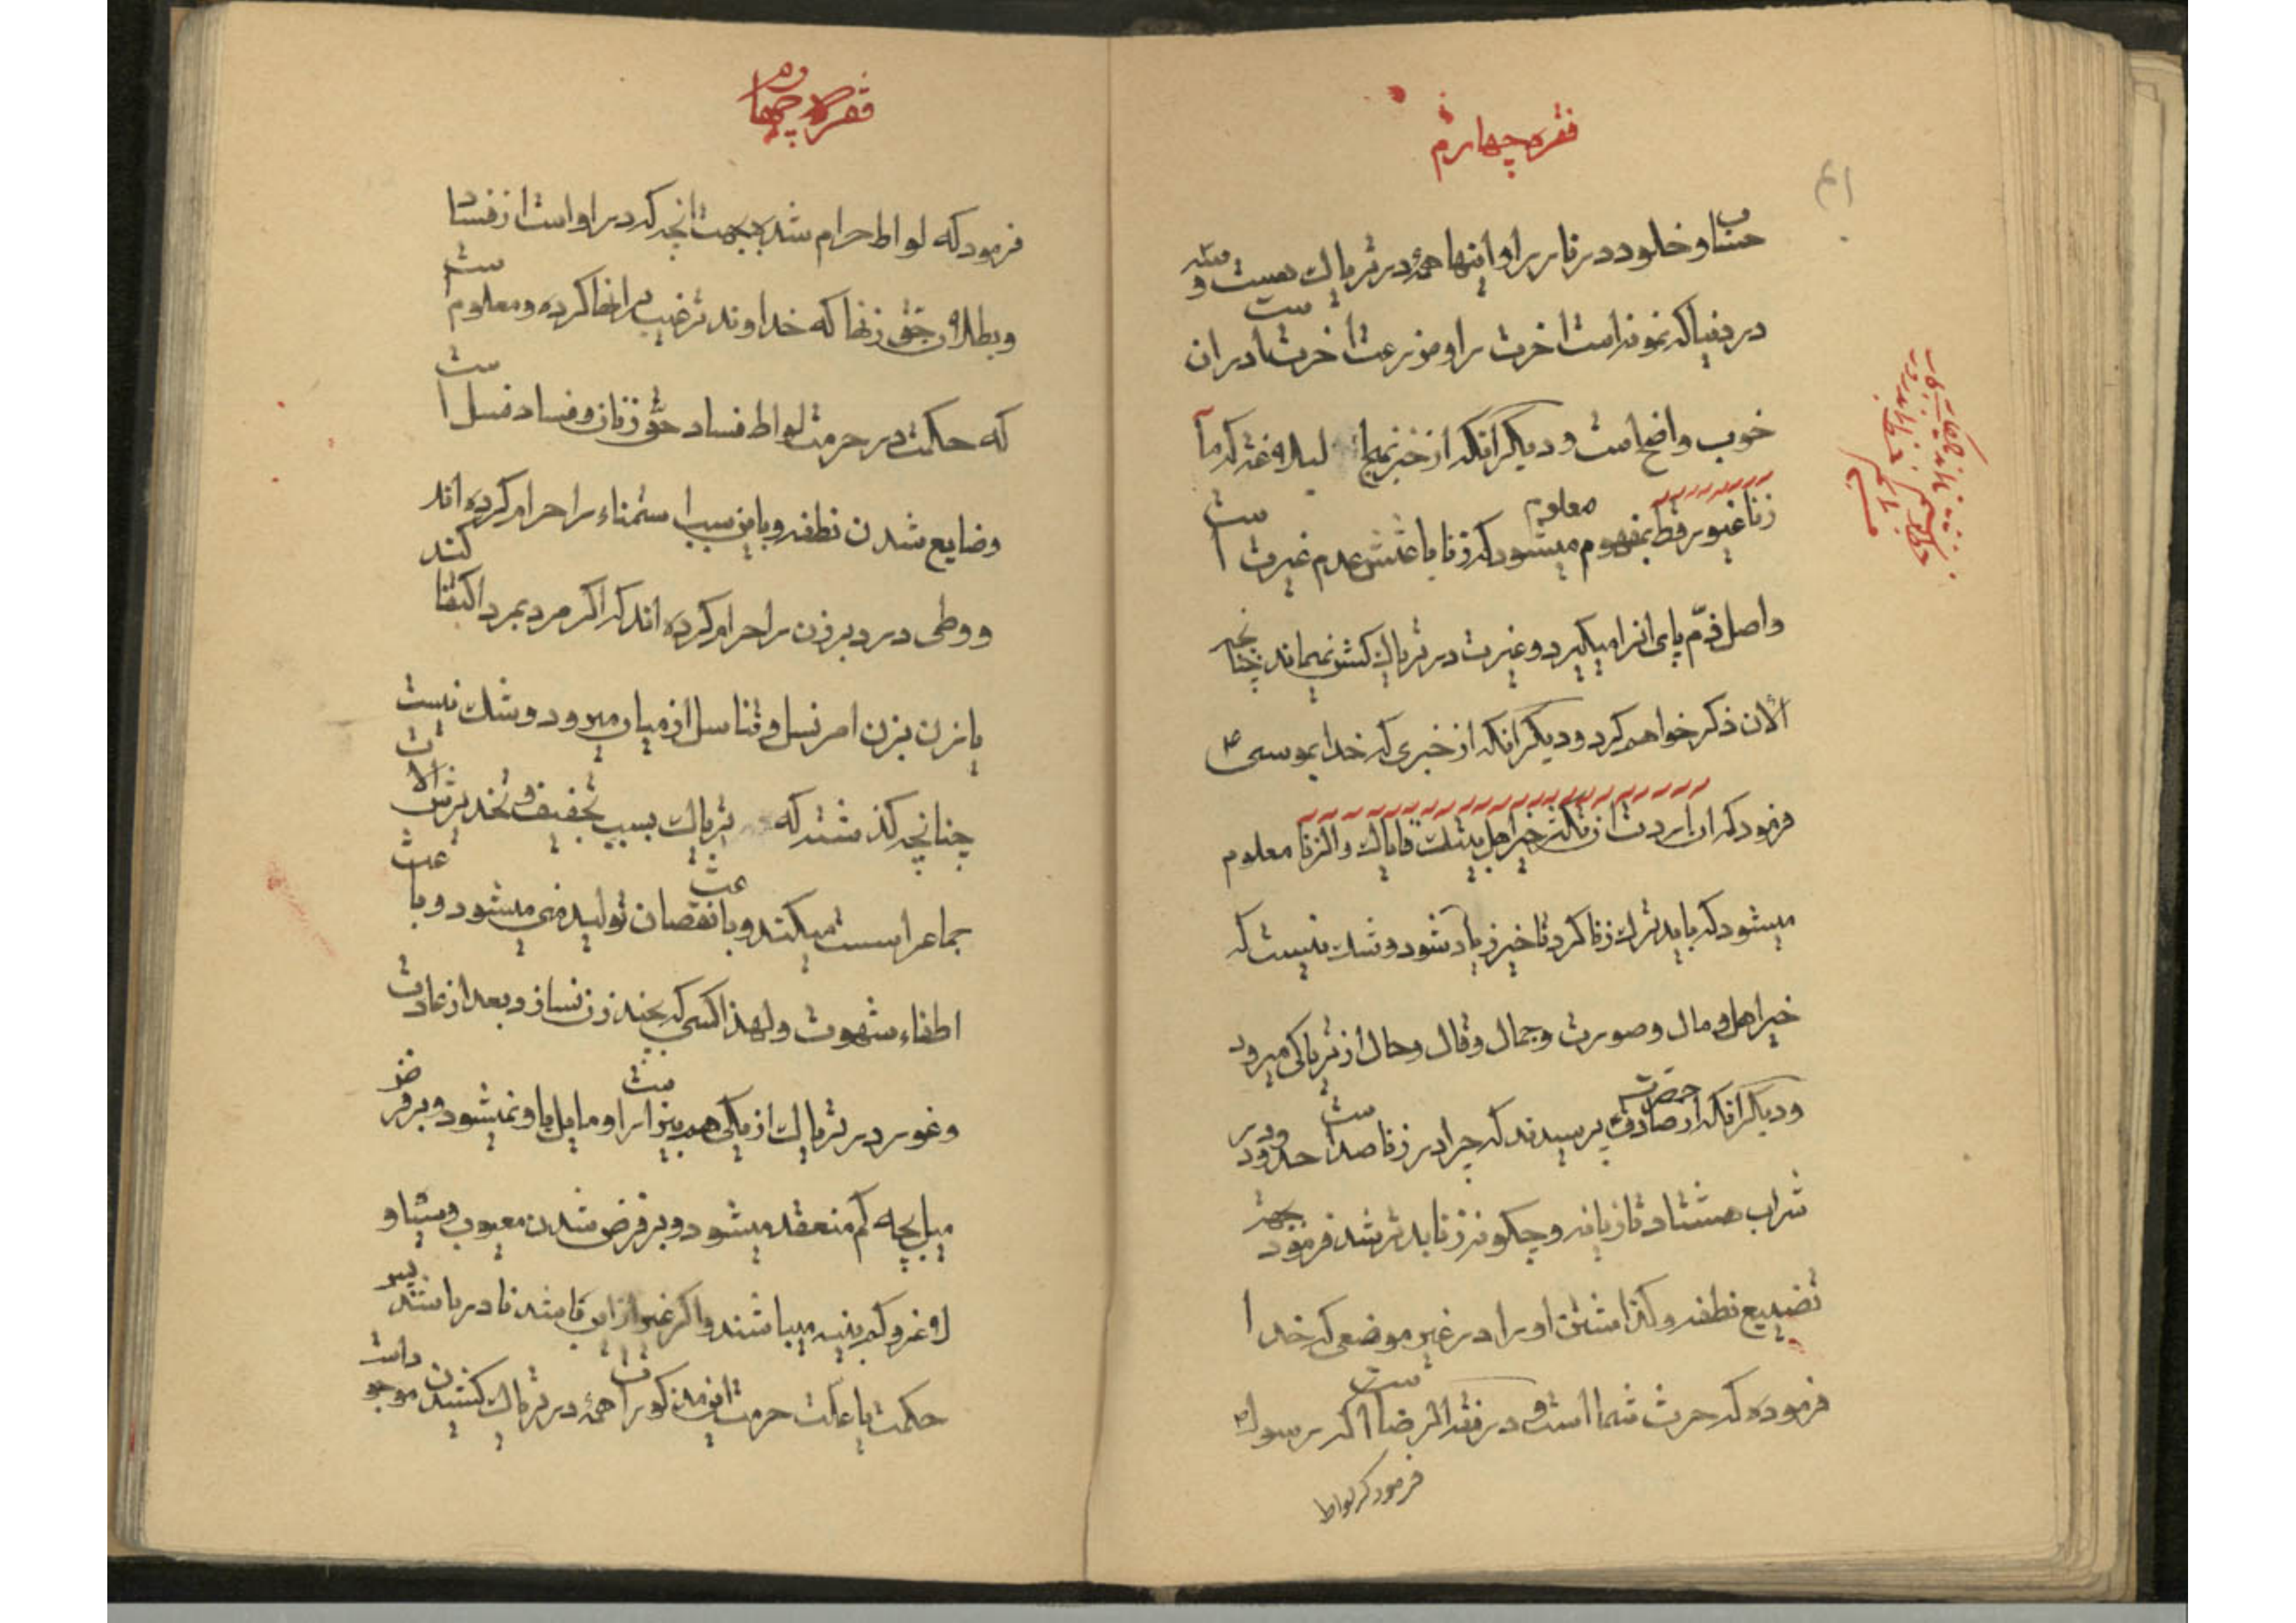 فقره چهارم
حساب و خلود در نار بر او اینها همه در تریاك هست و
در دنیا که نمونه است اخرت را و مزرعت اخرتست در ان
خوب واضح است و دیگر انکه از خبر نبوی که ما
زنا غیور قط معلوم میشود که زنا باعثش عدم غیرت است
واصل ذم پای انرا میگیرد و غیرت در تریاك کش نمیماند چنانچه
الان ذکر خواهم کرد و دیگر انکه از خبری که خدا بموسی ۴
فرمود که ان اردت ان تکثر خیر اهل بیتك فایاك والزنا معلوم
میشود که باید ترك زنا کرد تا خیر زیاد شود و شك نیست که
خیر اهل و مال و صورت و جمال و قال و حال از تریاکی میرود
و دیگر انکه از حضرت صادق پرسیدند که چرا در زنا صد است حد و در
شراب هشتاد تازیانه و چگونه زنا بدتر شد فرمود بجهة
تضییع نطفه و گذاشتن او را در غیر موضعی که خدا
فرموده که حرث شما است و در فقه الرضا است که رسول
فرمود که لواط
فقره چهارم
فرمود که لواط حرام شد بجهت انچه که در او است از فساد
و بطلان حق زنها که خداوند ترغیب برانها کرده و معلوم است
که حکمت در حرمت لواط فساد حق زنان و فساد نسل است
وضایع شدن نطفه و باین سبب استمناء را حرام کرده اند
و وطی در دبر زن را حرام کرده اند که اگر مرد بمرد اکتفا کند
یا زن بزن امر نسل و تناسل از میان میرود و شك نیست
چنانچه گذشت که تریاك بسبب تجفیف و تخدیرش الات
جماع را سست میکند و باعث نقصان تولید منی میشود و باعث
اطفاء شهوت و لهذا کسی که بچند زن نسازد بعد از عادت
و غور در تریاك از یکی هم بیزار است او مایل باو نمیشود و بر فرض
میل بچه کم منعقد میشود و بر فرض شدن معیوب و
لاغر و کم بنیه میباشند و اگر غیر از این باشد نادر باشد پس
حکمت یا علت حرمت این مذکورات همه در تریاك کشیدن موجود است